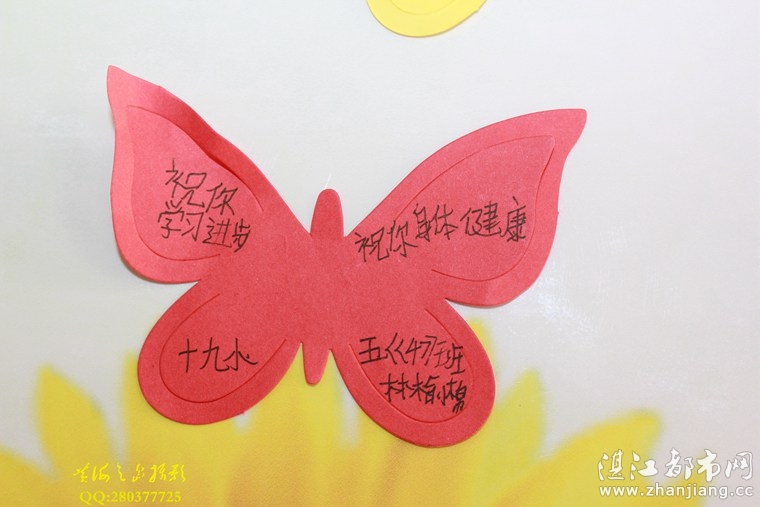 祝你
学习进步
祝你身体健康
十九小
五《4》班
QQ:280377725
湛江都市网
www.zhanjiang.cc